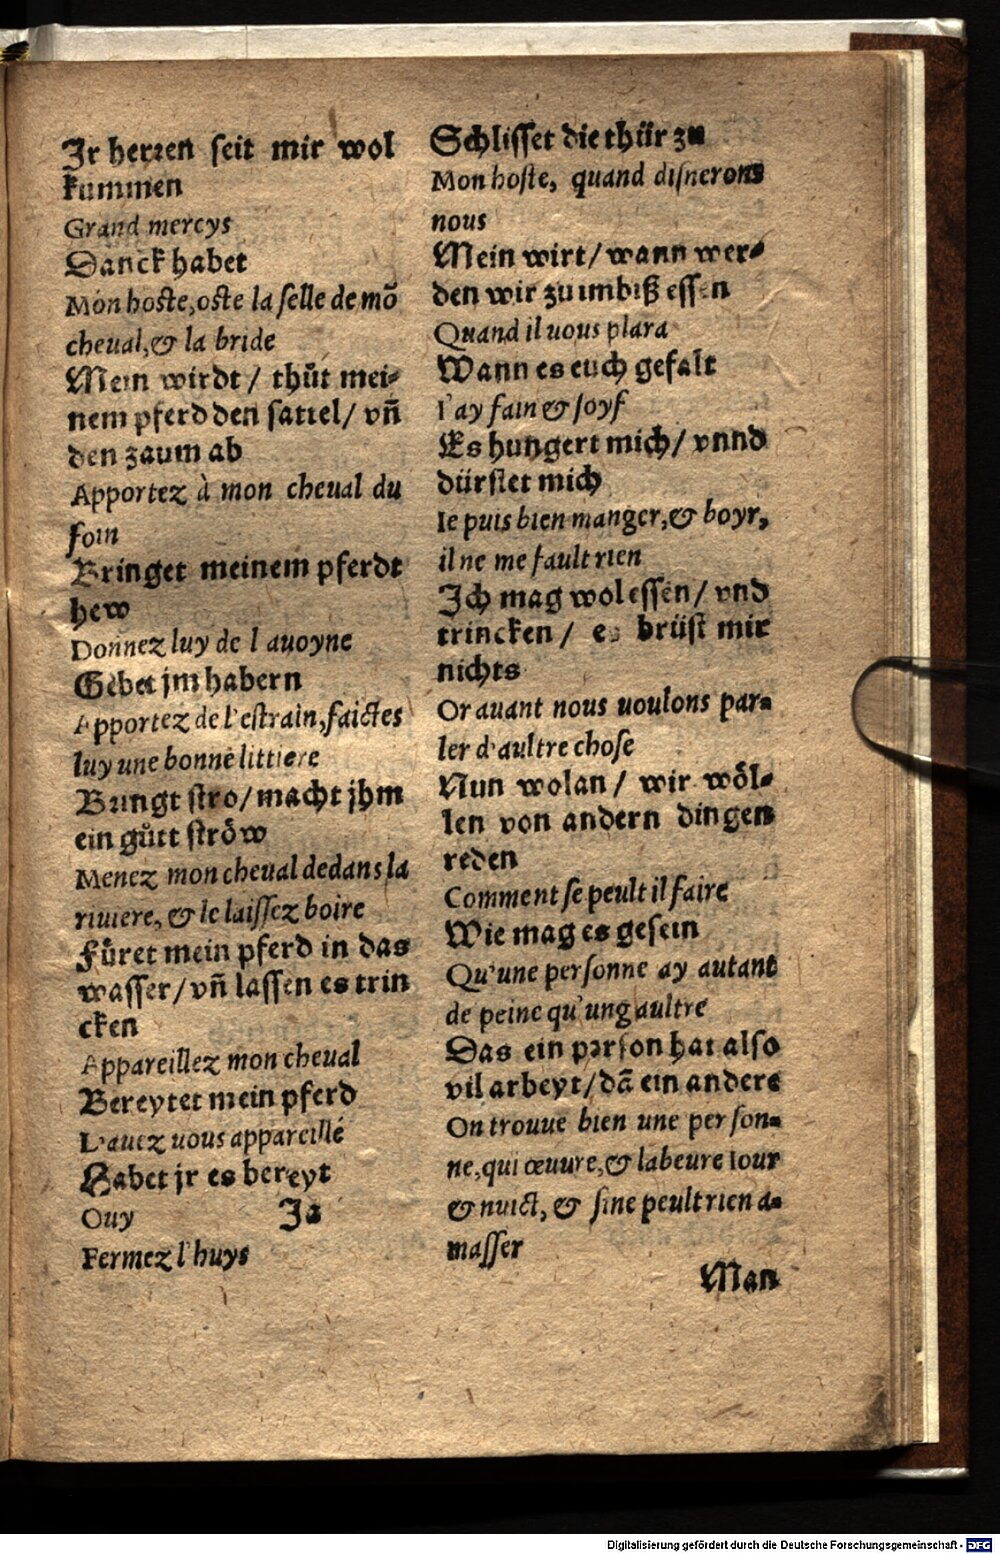 Jr herren seit mir wol
kummen
Grand mercys
Danck habet
Mon hoste, oste la selle de mõ
cheual, & la bride
Mein wirdt / thůt mei⸗
nem pferd den sattel / vñ
den zaum ab
Apportez à mon cheual du
foin
Bringet meinem pferdt
hew
Donnez luy de l auoyne
Gebet jm habern
Apportez de l'estrain, faictes
luy une bonne littiere
Bringt stro / macht jhm
ein gůtt ströw
Menez mon cheual dedans la
riuiere, & le laissez boire
Fůret mein pferd in das
wasser / vñ lassen es trin
cken
Appareillez mon cheual
Bereytet mein pferd
L'auez uous appareillé
Habet jr es bereyt
Ouy Ja
Fermez l'huys
Schlisset die thür zu
Mon hoste, quand disnerons
nous
Mein wirt / wann wer⸗
den wir zu imbiß essen
Quand il uous plara
Wann es euch gefalt
I'ay fain & soyf
Es hungert mich / vnnd
dürstet mich
Ie puis bien manger, & boyr,
il ne me fault rien
Ich mag wol essen / vnd
trincken / es brüst mir
nichts
Or auant nous uoulons par⸗
ler d'aultre chose
Nun wolan / wir wöl⸗
len von andern dingen
reden
Comment se peult il faire
Wie mag es gesein
Qu'une personne ay autant
de peine qu'ung aultre
Das ein person hat also
vil arbeyt / dã ein andere
On trouue bien une person⸗
ne, qui œuure, & labeure iour
& nuict, & si ne peult rien a⸗
masser
Man
Digitalisierung gefördert durch die Deutsche Forschungsgemeinschaft - DFG